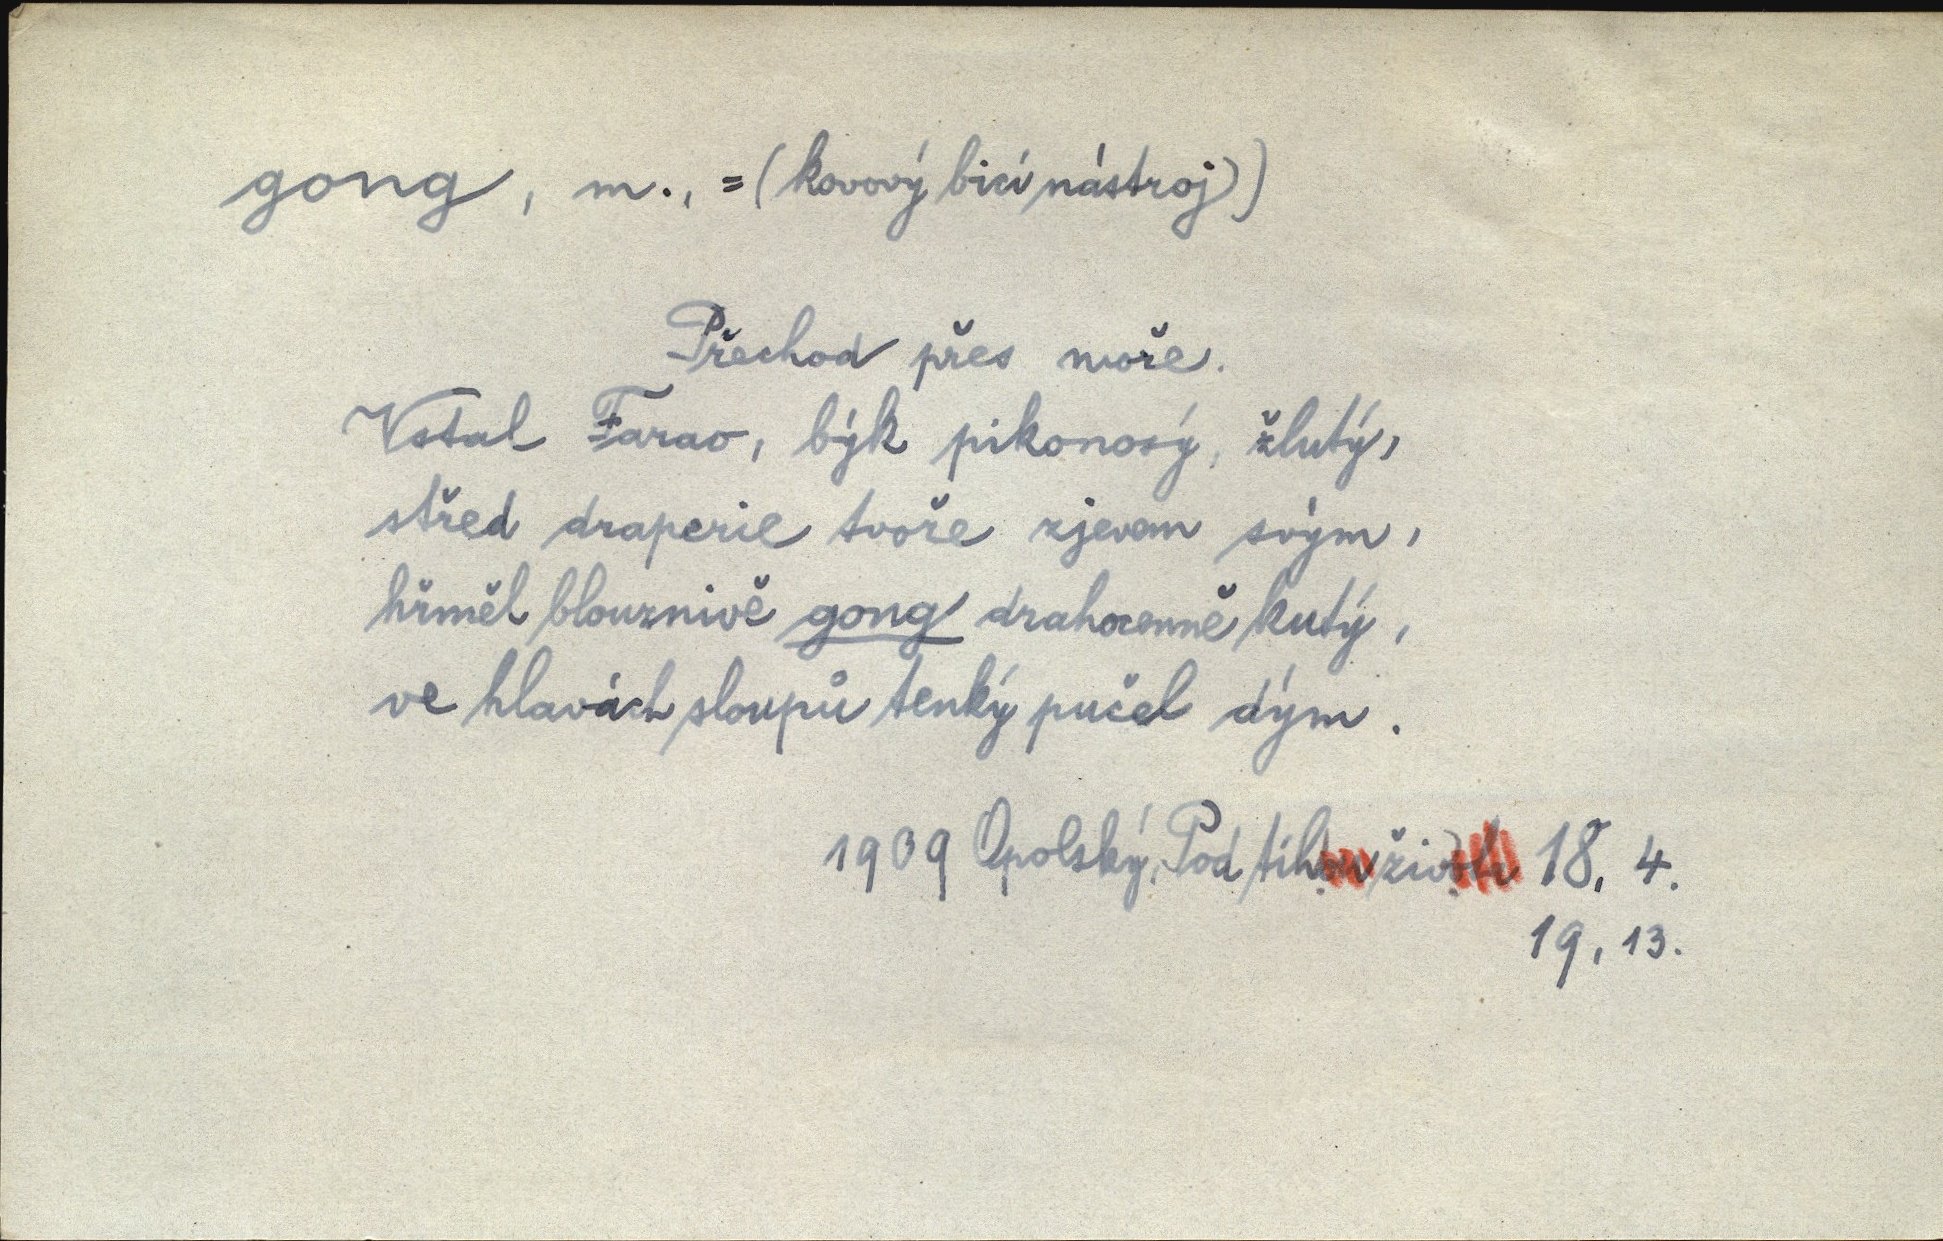 gong, m., = (kovový bicí nástroj))
Přechod přes moře.
Vstal Farao, býk pikonosý, žlutý,
střed draperie tvoře zjevem svým,
hřměl blouznivě gong drahocenně kutý,
ve hlavách sloupů tenký pučel dým.
1909 Opolský, Pod tíhou života 18, 4.
19, 13.